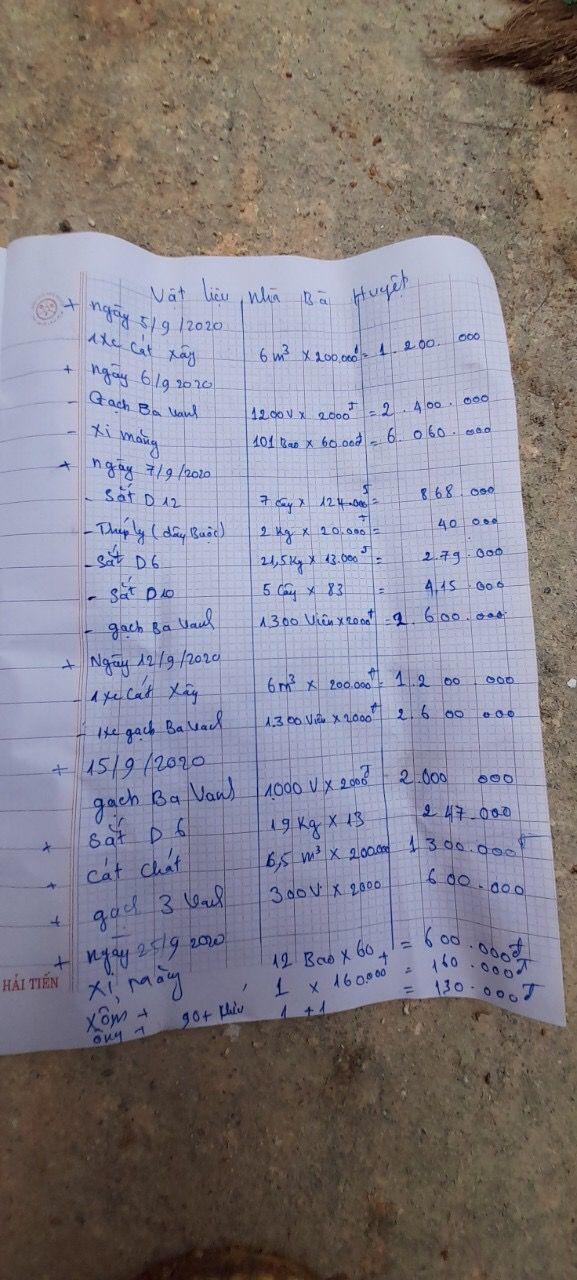 Vật liệu Nhà Bà Huyệt
+ ngày 5/9/2020
1 xe Cát xây 6m³ x 200.000đ = 1.200.000
+ ngày 6/9 2020
- Gạch Ba Vanh 1200V x 2000đ = 2.400.000
- Xi măng 101 Bao x 60.00đ = 6.060.000
+ ngày 7/9/2020
- Sắt D12 7 cây x 124.000đ = 868.000
- Thép ly (dây Buộc) 2 Kg x 20.000đ = 40 000
- Sắt D6 21,5Kg x 13.000đ = 279.000
- Sắt D10 5 Cây x 83 = 4,15.000
- gạch Ba Vanh 1300 Viên x 2000đ = 2.600.000
+ Ngày 12/9/2020
- 1 xe Cát Xây 6m³ x 200.000đ = 1.200.000
- 1xe gạch Ba Vanh 1.300 Viên x 2000đ 2.600 000
+ 15/9/2020
gạch Ba Vanh 1000 V x 2000đ 2.000 000
+ Sắt D6 19 Kg x 13 247.000
+ Cát Chát 6,5 m³ x 200.000 1300.000đ
+ gạch 3 Vanh 300V x 2000 600.000
+ ngày 25/9 2020
Xi măng 12 Bao x 60 = 600.000đ
1 x 160.000 = 160.000đ
90+ 1 + 1 = 130.000đ
HẢI TIẾN